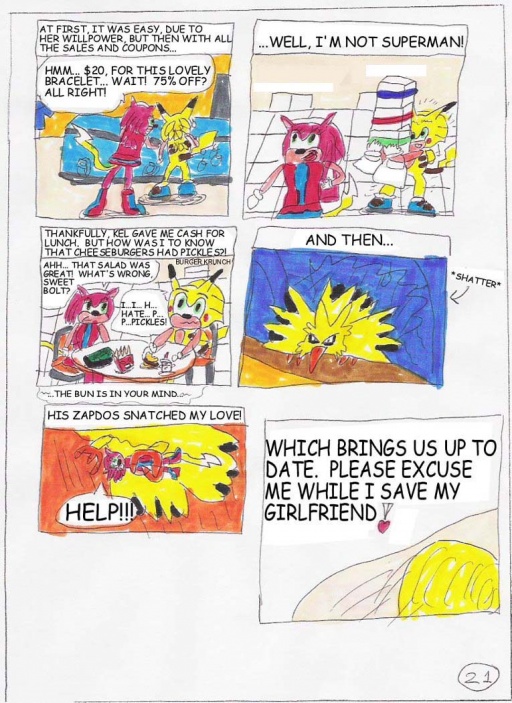 AT FIRST, IT WAS EASY, DUE TO
HER WILLPOWER, BUT THEN WITH ALL
THE SALES AND COUPONS...
HMM... $20, FOR THIS LOVELY
BRACELET... WAIT! 75% OFF?
ALL RIGHT!
...WELL, I'M NOT SUPERMAN!
THANKFULLY, KEL GAVE ME CASH FOR
LUNCH. BUT HOW WAS I TO KNOW
THAT CHEESEBURGERS HAD PICKLES?!
BURGER KRUNCH
AHH... THAT SALAD WAS
GREAT! WHAT'S WRONG,
SWEET
BOLT?
I...I... H...
HATE... P...
P...PICKLES!
...THE BUN IS IN YOUR MIND...
AND THEN...
*SHATTER*
HIS ZAPDOS SNATCHED MY LOVE!
HELP!!!
WHICH BRINGS US UP TO
DATE. PLEASE EXCUSE
ME WHILE I SAVE MY
GIRLFRIEND!
21